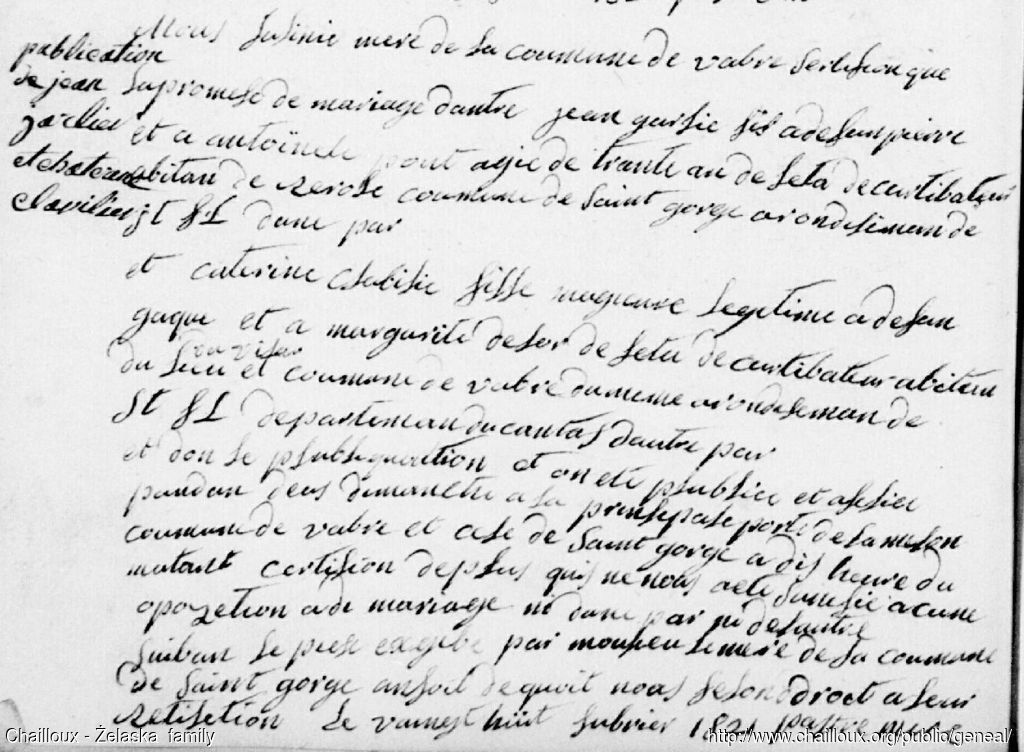 publication
de jean
jarlier
et chaterine
clavilier
Nous maire de la coumune de vabre sertision que
la promese de mariage dantre jean garlie fis a defun pierre
et a antoinete pont agie de trante an de feta de cartibateur
abitan de Rerole coumune de saint gorge arondisiman de
st fL dune par
et caterine clabilie fille mageure legitime a defan
gaque et a margarite delor de feta de cartibateur abitan
du lieu et coumune de vabre du meme arondiseman de
St fL departeman du cantal dautre par
et don le plubliquation et on ete plublier et afficer
pandan deus dimanche a la prinsipale porte de la meson
coumune de vabre et cele de saint gorge a dis heure du
matant certision de plus quis ne nous a ete sinefie acune
opozetion a de mariage ni dune par ni de lautre
suiban le par mousieu le mere de la coumune
de saint gorge an foi de quoit nous selon droet a leur
Retisetion Le vaintst huit fubrier 1821 mere
Chailloux - Żelaska family
http://www.chailloux.org/public/geneal/